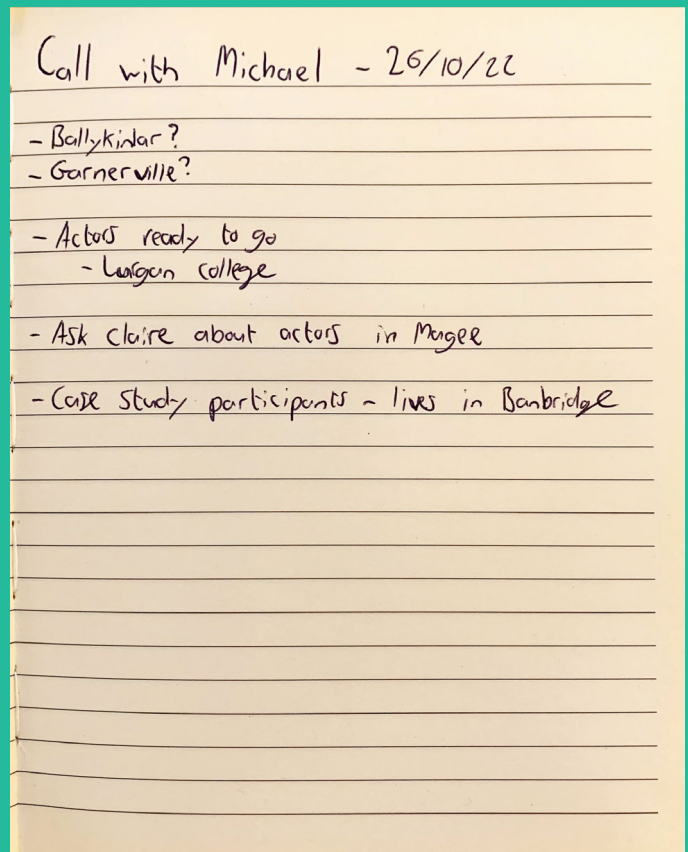 Call with Michael - 26/10/22
- Ballykinlar?
- Garnerville?
- Actors ready to go
- Lurgan college
- Ask Claire about actors in Magee
- Case Study participants - lives in Banbridge